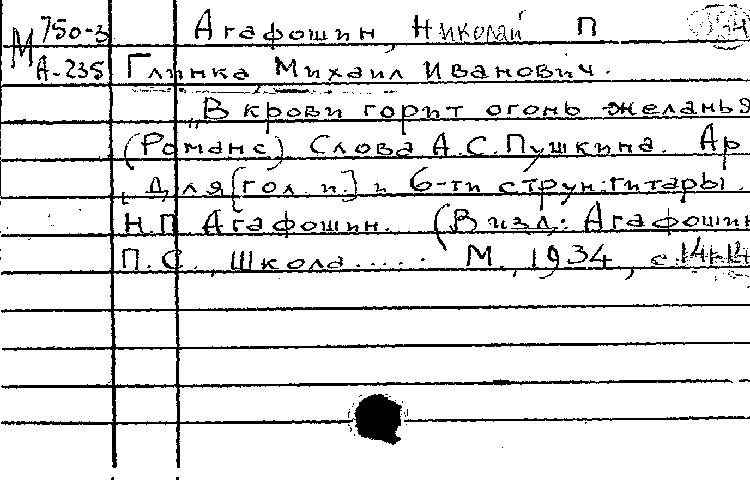 М 750-3 Агафошин, Николай П
А-235 Глинка, Михаил Иванович.
"В крови горит огонь желанья
(Романс) Слова А.С.Пушкина. Ар
для [гол. и.] и 6-ти струн.гитары
Н.П Агафошин. (В изд.: Агафошин
П.С., Школа..... М., 1934, с.